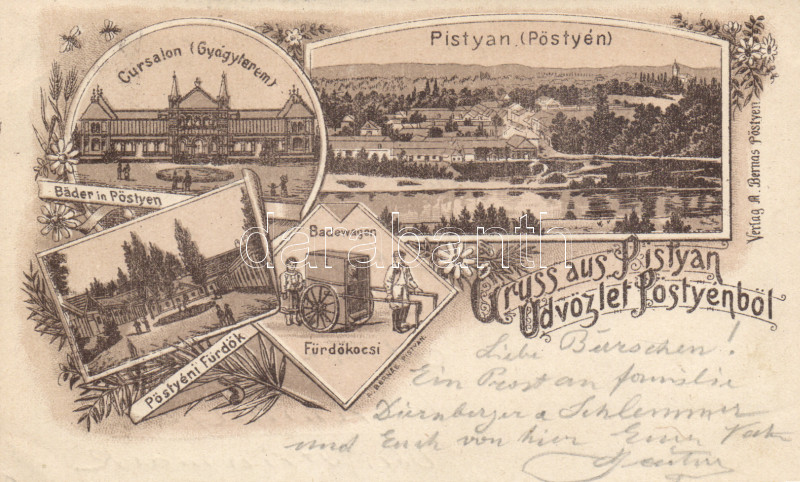 Cursalon (Gyógyterem)
Pistyan. (Pöstyén)
Bäder in Pöstyen
Badewagen
Fürdőkocsi
A. BERNAS PISTYAN.
Pöstyéni Fürdők
Verlag A. Bernas Pöstyen
darabanth
Gruss aus Pistyan
Üdvözlet Pöstyénböl
Liebe Burschen!
Ein Prost an familie
Dürnberger u Schlemmer
und Euch von hier Euer